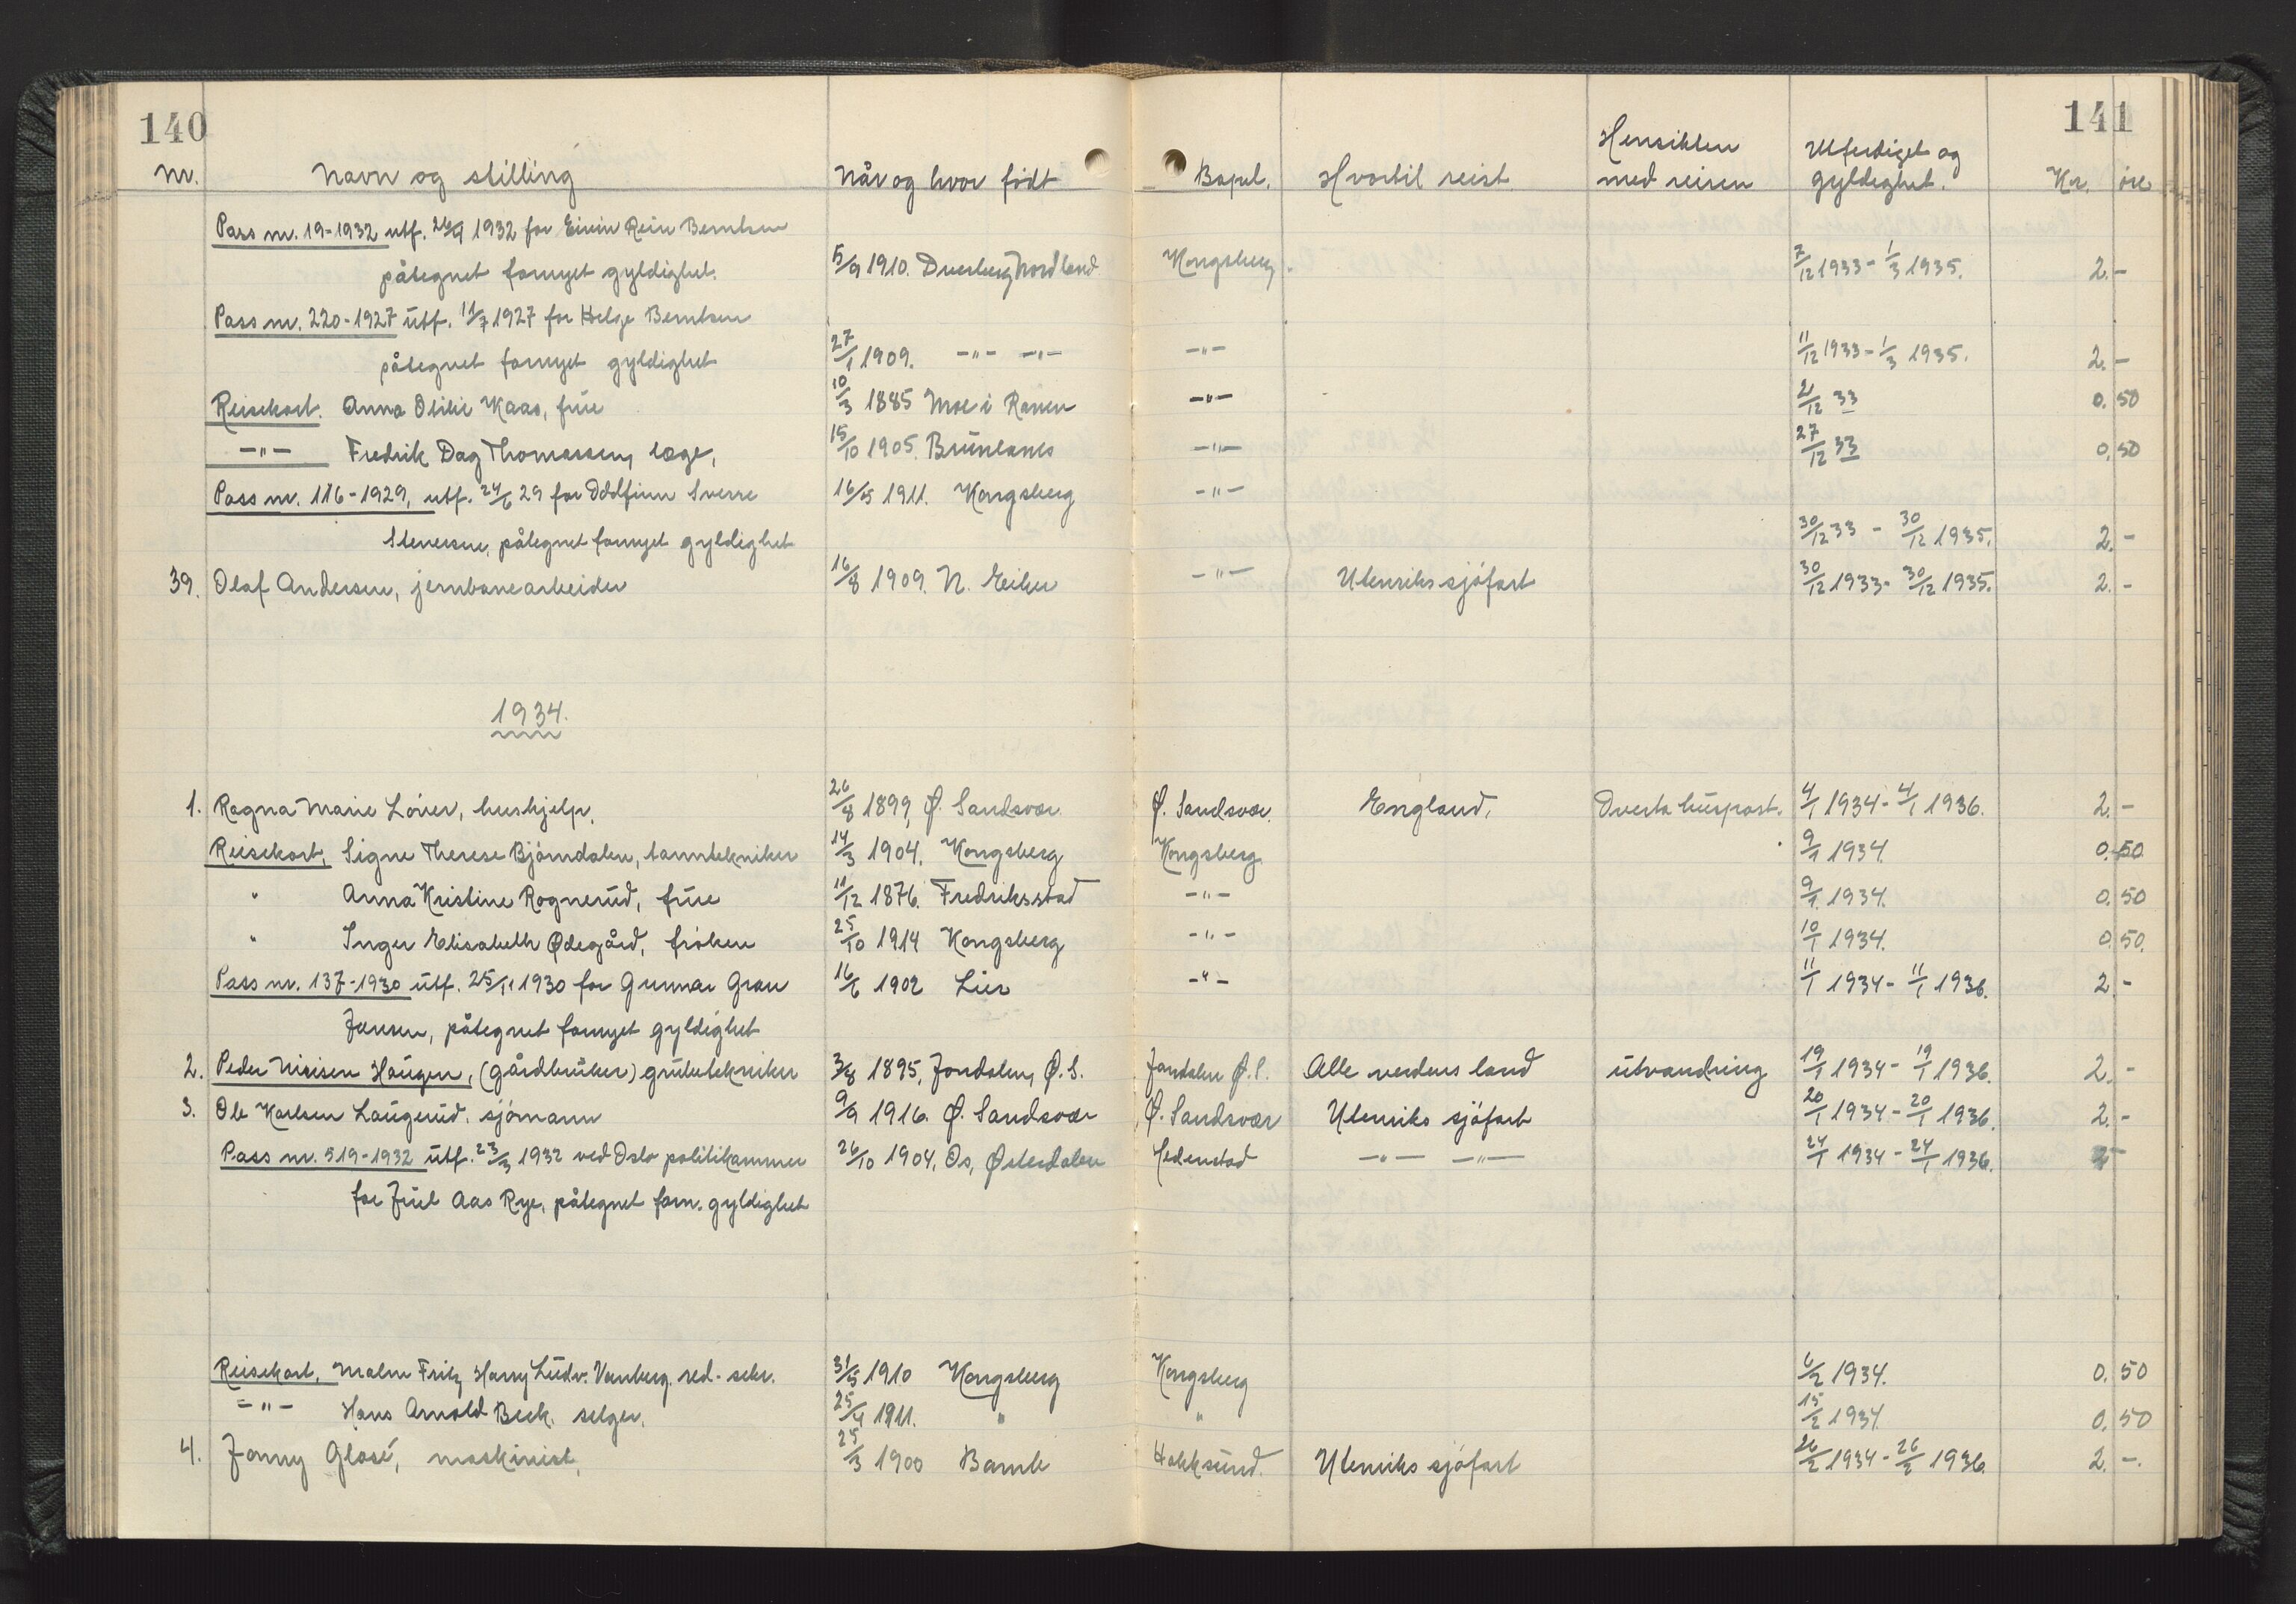 140 141
Nr. Navn og stilling Når og hvor født Bopel. Hvortil reist Hensikten med reisen Utferdiget og gyldighet. Kr. øre
Pass nr. 19-1932 utf. 26/9 1932 for Eivin Rein Berntsen
påtegnet fornyet gyldighet. 5/9 1910. Dverberg Nordland Kongsberg. 7/12 1933 - 1/3 1935. 2. -
Pass nr. 220-1927 utf. 11/7 1927 for Helge Berntsen
påtegnet fornyet gyldighet 27/1 1909. -"- -"- -"- 11/12 1933 - 1/3 1935. 2. -
Reisekort. Anna Otilie Kaas, frue 10/3 1885 Moe i Ranen -"- 2/12 33 0. 50
-"- Fredrik Dag Thomassen, læge, 15/10 1905. Brunlanes -"- 27/12 33 0. 50
Pass nr. 116-1929, utf. 24/6 29 for Oddfinn Sverre 16/5 1911. Kongsberg -"-
Stenersen, påtegnet fornyet gyldighet 30/12 33 - 30/12 1935. 2. -
39. Olaf Andersen, jernbanearbeider 16/8 1909. N. Eiker -"- Utenriks sjöfart 30/12 1933 - 30/12 1935. 2. -
1934.
1. Ragna Marie Löver, hushjelp. 26/8 1899, Ø. Sandsvær Ø. Sandsvær. England. Overta huspost. 4/1 1934 - 4/1 1936. 2. -
Reisekort, Signe Therese Björndalen, tanntekniker 14/3 1904. Kongsberg Kongsberg 9/1 1934. 0. 50
" Anna Kristine Rognerud, frue 11/12 1876. Fredriksstad -"- 9/1. 1934. 0. 50
" Inger Elisabeth Ødegård, fröken 25/10 1914 Kongsberg -"- 10/1 1934. 0. 50.
Pass nr. 137-1930 utf. 25/11 1930 for Gunnar Grau 16/6 1902 Lier -"- 11/1 1934 - 11/1 1936. 2. -
Jensen, påtegnet fornyet gyldighet
2. Peder Nirisen Haugen, (gårdbruker) grubetekniker 3/8 1895, Jondalen, Ø.S. Jondalen Ø.S. Alle verdens land utvandring 19/1 1934 - 19/1 1936. 2. -
3. Ole Karlsen Laugerud. sjömann 9/9 1916. Ø. Sandsvær Ø. Sandsvær Utenriks sjöfart 20/1 1934 - 20/1 1936. 2. -
Pass nr. 519-1932 utf. 23/3 1932 ved Oslo politikammer 26/10 1904, Os, Østerdalen Hedenstad -"- -"- 24/1 1934 - 24/1 1936. 2 -
for Juel Aas Rye, påtegnet forn. gyldighet
Reisekort, Malm Fritz Harry Ludv. Vanberg, red.-sekr. 31/5 1910 Kongsberg Kongsberg 6/2 1934. 0. 50
-"- Hans Arnold Beck. selger. 25/4 1911. " " 15/2 1934. 0. 50
4. Jonny Glosé, maskinist, 25/3 1900 Bamle Hokksund. Utenriks sjöfart 26/2 1934 - 26/2 1936. 2. -.